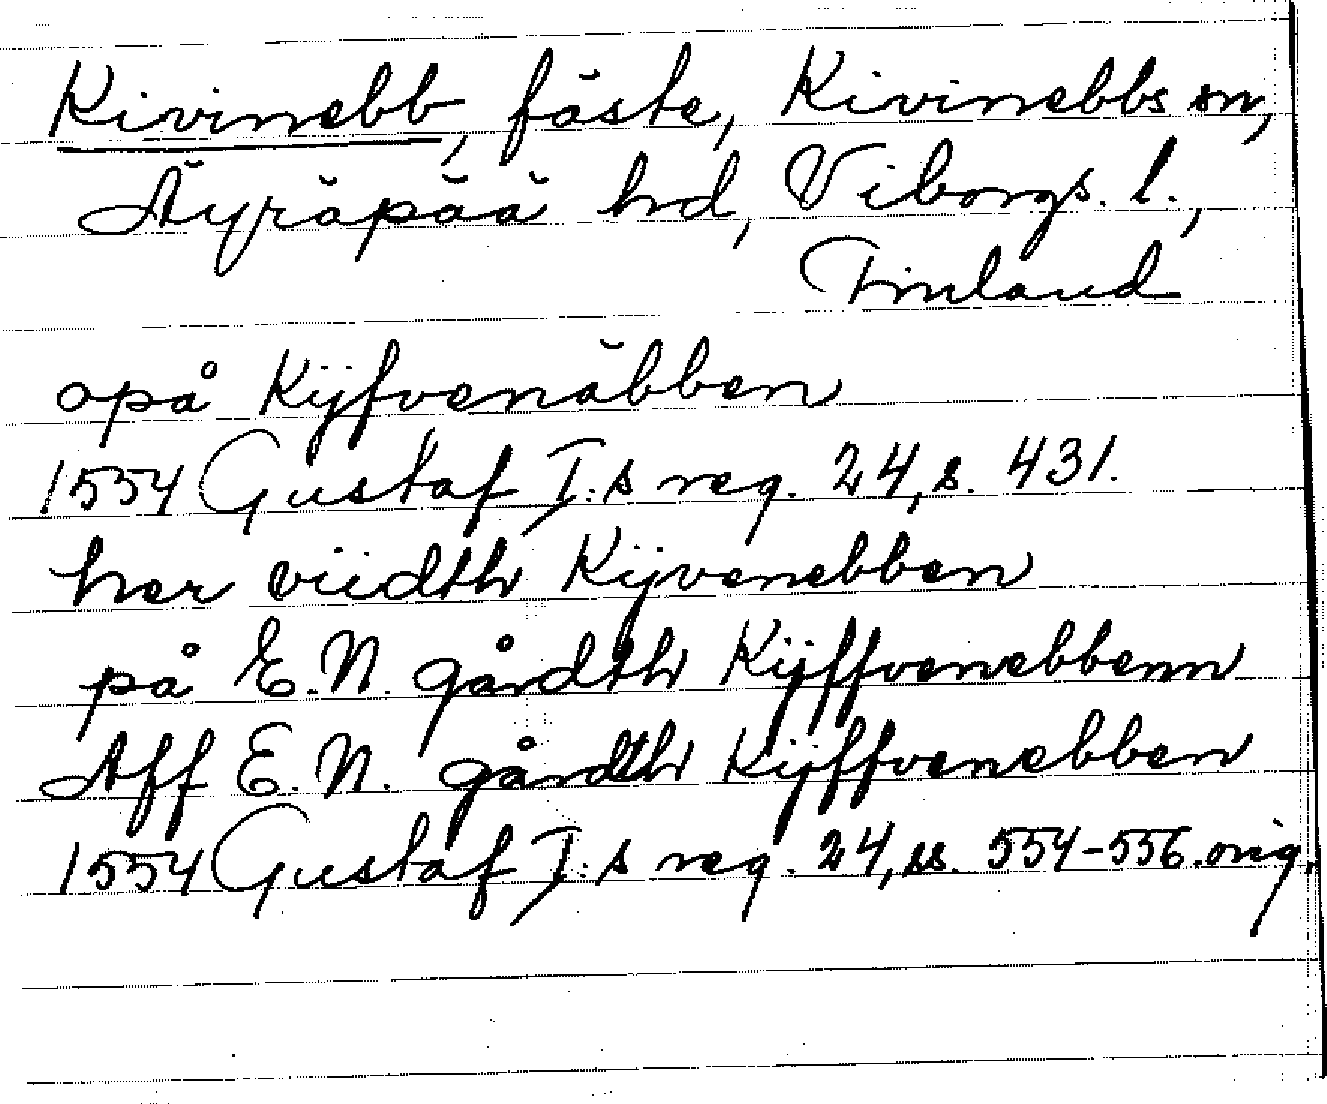 Kivinebb, fäste, Kivinebbs sn,
Äyräpää hd, Viborgs. l.,
Finland
opå Kijfvenäbben
1554 Gustaf I:s reg. 24, s. 431.
her viidth Kijvenebben
på E.N. gårdth Kijffvenebbenn
Aff E.N. gårdth Kijffvenebben
1554 Gustaf I:s reg. 24, ss. 554-556. orig.